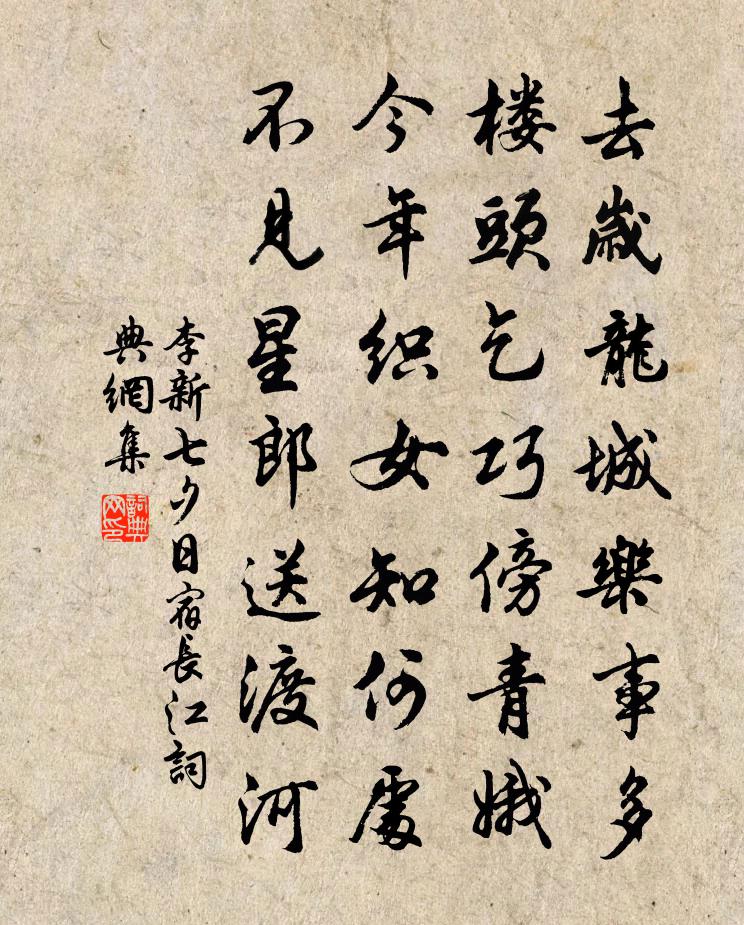 去歲龍城樂事多
楼頭乞巧傍青娥
今年織女知何處
不見星郎送渡河
李新七夕日宿長江詞
典網集
詞典网印